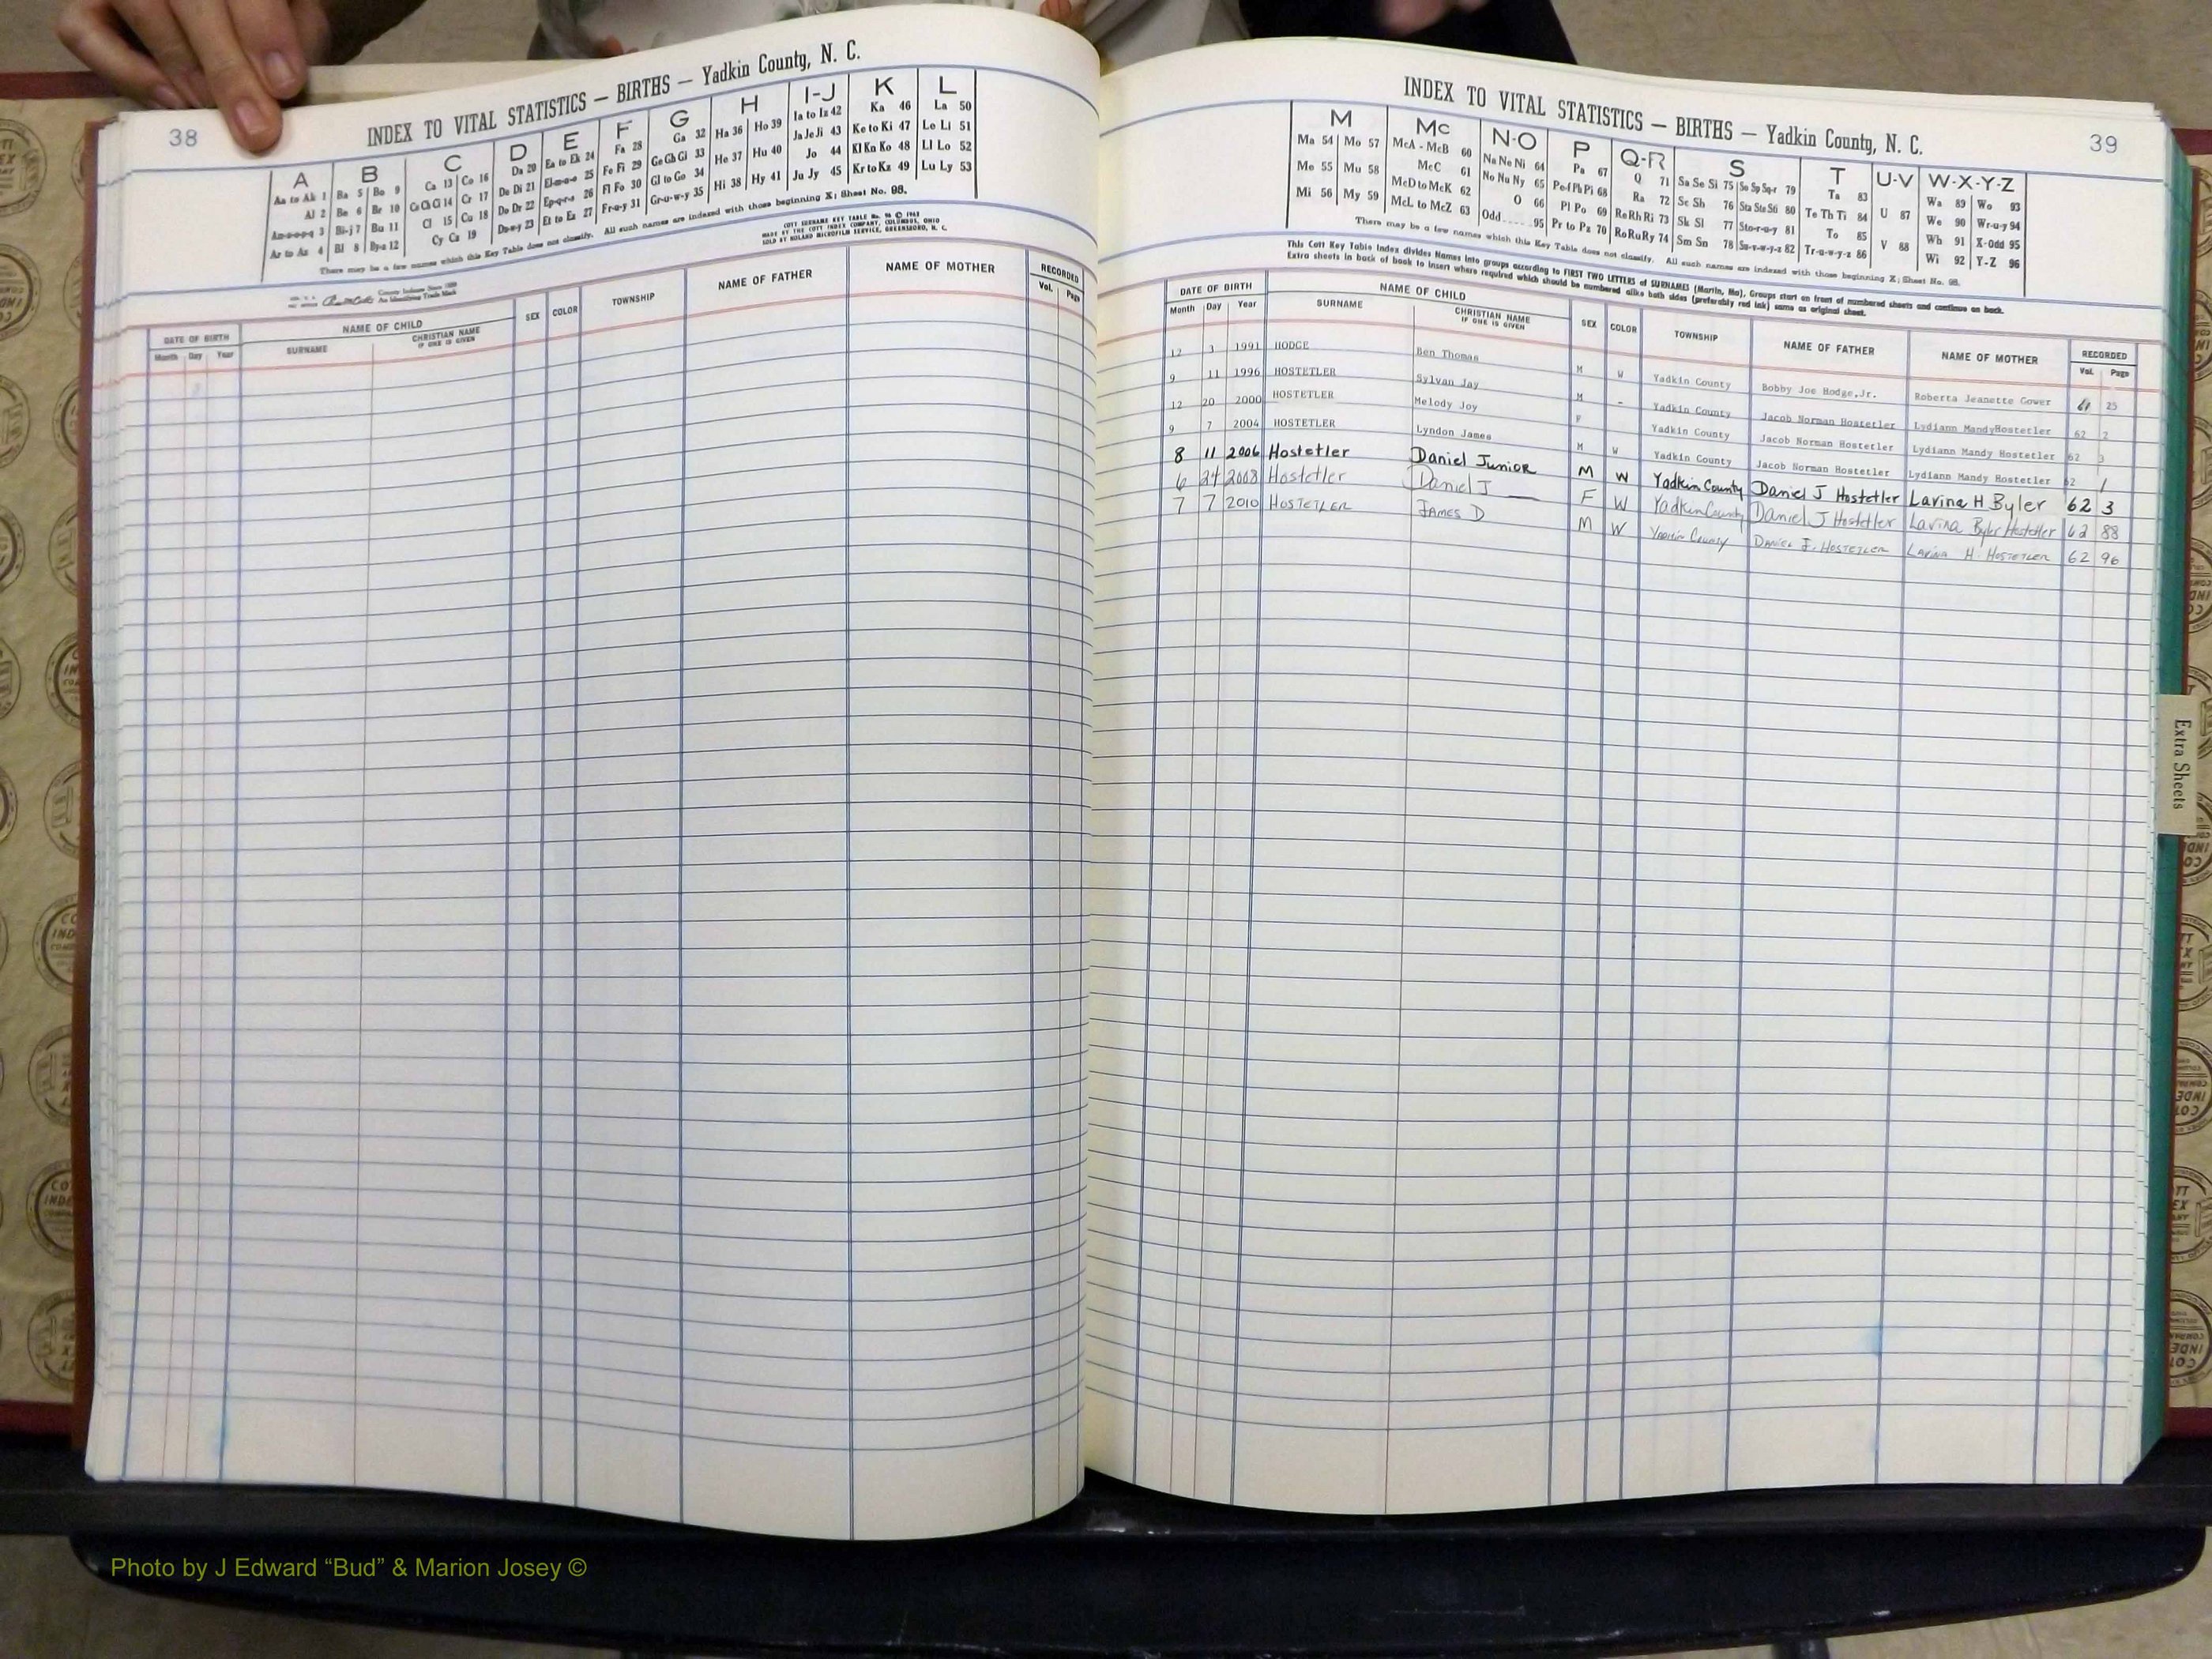 38
INDEX TO VITAL STATISTICS — BIRTHS — Yadkin County, N. C.
A B C D E F G H I-J K L
Aa to Ak 1 Ba 5 Bo 9 Ca 13 Co 16 Da 20 Ea to Ek 24 Fa 28 Ga 32 Ha 36 Ho 39 Ia to Iz 42 Ka 46 La 50
Al 2 Be 6 Br 10 Ce Ch Ci 14 Cr 17 De Di 21 El-m-n-o 25 Fe Fi 29 Ge Gh Gi 33 He 37 Hu 40 Ja Je Ji 43 Ke to Ki 47 Le Li 51
Am-n-o-p-q 3 Bi-j 7 Bu 11 Cl 15 Cu 18 Do Dr 22 Ep-q-r-s 26 Fl Fo 30 Gl to Go 34 Hi 38 Hy 41 Jo 44 Kl Kn Ko 48 Ll Lo 52
Ar to Az 4 Bl 8 By-z 12 Cy Cz 19 Du-w-y 23 Et to Ez 27 Fr-u-y 31 Gr-u-w-y 35 Ju Jy 45 Kr to Kz 49 Lu Ly 53
There may be a few names which this Key Table does not classify. All such names are indexed with those beginning X; Sheet No. 98.
COTT SURNAME KEY TABLE No. 96 © 1963
MADE BY THE COTT INDEX COMPANY, COLUMBUS, OHIO
SOLD BY NOLAND MICROFILM SERVICE, GREENSBORO, N. C.
County Indexes Since 1888
An Identifying Trade Mark
DATE OF BIRTH NAME OF CHILD SEX COLOR TOWNSHIP NAME OF FATHER NAME OF MOTHER RECORDED
Month Day Year SURNAME CHRISTIAN NAME IF ONE IS GIVEN Vol. Page
INDEX TO VITAL STATISTICS — BIRTHS — Yadkin County, N. C.
39
M Mc N-O P Q-R S T U-V W-X-Y-Z
Ma 54 Mo 57 McA - McB 60 Na Ne Ni 64 Pa 67 Q 71 Sa Se Si 75 So Sp Sq-r 79 Ta 83 U 87 Wa 89 Wo 93
Me 55 Mu 58 McC 61 No Nu Ny 65 Pe-f Ph Pi 68 Ra 72 Sc Sh 76 Sta Ste Sti 80 Te Th Ti 84 V 88 We 90 Wr-u-y 94
Mi 56 My 59 McD to McK 62 O 66 Pl Po 69 Re Rh Ri 73 Sk Sl 77 Sto-r-u-y 81 To 85 Wh 91 X-Odd 95
McL to McZ 63 Odd 95 Pr to Pz 70 Ro Ru Ry 74 Sm Sn 78 Su-v-w-y-z 82 Tr-u-w-y-z 86 Wi 92 Y-Z 96
There may be a few names which this Key Table does not classify. All such names are indexed with those beginning X; Sheet No. 98.
This Cott Key Table Index divides Names into groups according to FIRST TWO LETTERS of SURNAMES (Martin, Ma), Groups start on front of numbered sheets and continue on back.
Extra sheets in back of book to insert where required which should be numbered alike both sides (preferably red ink) same as original sheet.
DATE OF BIRTH NAME OF CHILD SEX COLOR TOWNSHIP NAME OF FATHER NAME OF MOTHER RECORDED
Month Day Year SURNAME CHRISTIAN NAME IF ONE IS GIVEN Vol. Page
12 3 1991 HODGE Ben Thomas M W Yadkin County Bobby Joe Hodge,Jr. Roberta Jeanette Gower 61 25
9 11 1996 HOSTETLER Sylvan Jay M - Yadkin County Jacob Norman Hostetler Lydiann MandyHostetler 62 2
12 20 2000 HOSTETLER Melody Joy F Yadkin County Jacob Norman Hostetler Lydiann Mandy Hostetler 62 3
9 7 2004 HOSTETLER Lyndon James M W Yadkin County Jacob Norman Hostetler Lydiann Mandy Hostetler 62 1
8 11 2006 Hostetler Daniel Junior M W Yadkin County Daniel J Hostetler Lavina H Byler 62 3
6 24 2008 Hostetler Daniel J F W Yadkin County Daniel J Hostetler Lavina Byler Hostetler 62 88
7 7 2010 HOSTETLER JAMES D M W Yadkin County DANIEL J. HOSTETLER LAVINA H. HOSTETLER 62 96
Extra Sheets
Photo by J Edward “Bud” & Marion Josey ©